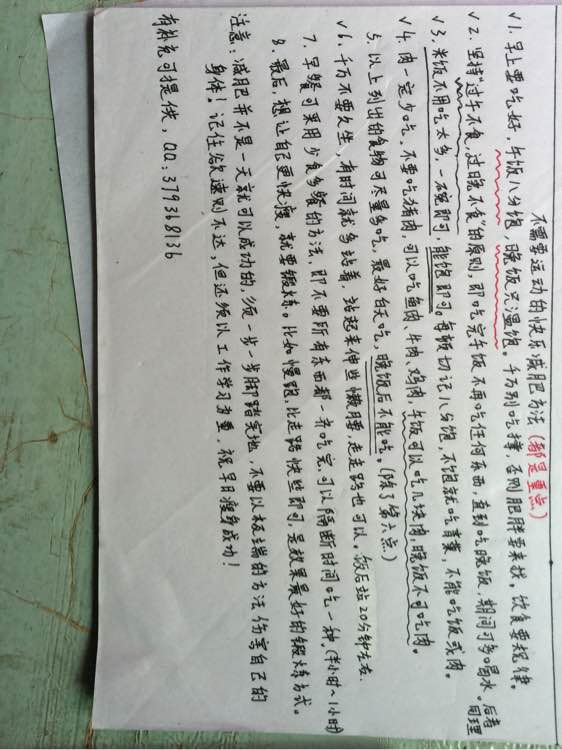 不需要运动的快乐减肥方法（都是重点）
√1. 早上要吃好，午饭八分饱，晚饭只温饱。千万别吃撑，否则肥胖要来找。饮食要规律。
√2. 坚持“过午不食，过晚不食的原则，即吃完午饭不再吃任何东西，直到吃晚饭，期间可多喝水。后者同理
√3. 米饭不用吃太多，一碗即可，能饱即可。每顿切记八分饱，不饱就吃青菜，不能吃饭或肉。
√4. 肉一定少吃，不要吃猪肉，可以吃鱼肉、牛肉、鸡肉，午饭可以吃几块肉，晚饭不可吃肉。
5. 以上列出的食物可尽量多吃，最好白天吃，晚饭后不能吃。（除了第六点）
√6. 千万不要久坐，有时间就多站着，站起来伸些懒腰，走走路也可以。饭后站20分钟左右.
7. 早餐可采用少食多餐的方法，即不要所有东西都一齐吃完，可以隔断时间吃一种。（半小时~1小时）
8. 最后，想让自己更快瘦，就要锻炼。比如慢跑，比走路快些即可，是效果最好的锻炼方式。
注意：减肥并不是一天就可以成功的，须一步一步脚踏实地，不要以极端的方法伤害自己的
身体！记住欲速则不达，但还须以工作学习为重，祝早日瘦身成功！
有补充可提供，QQ：379368136